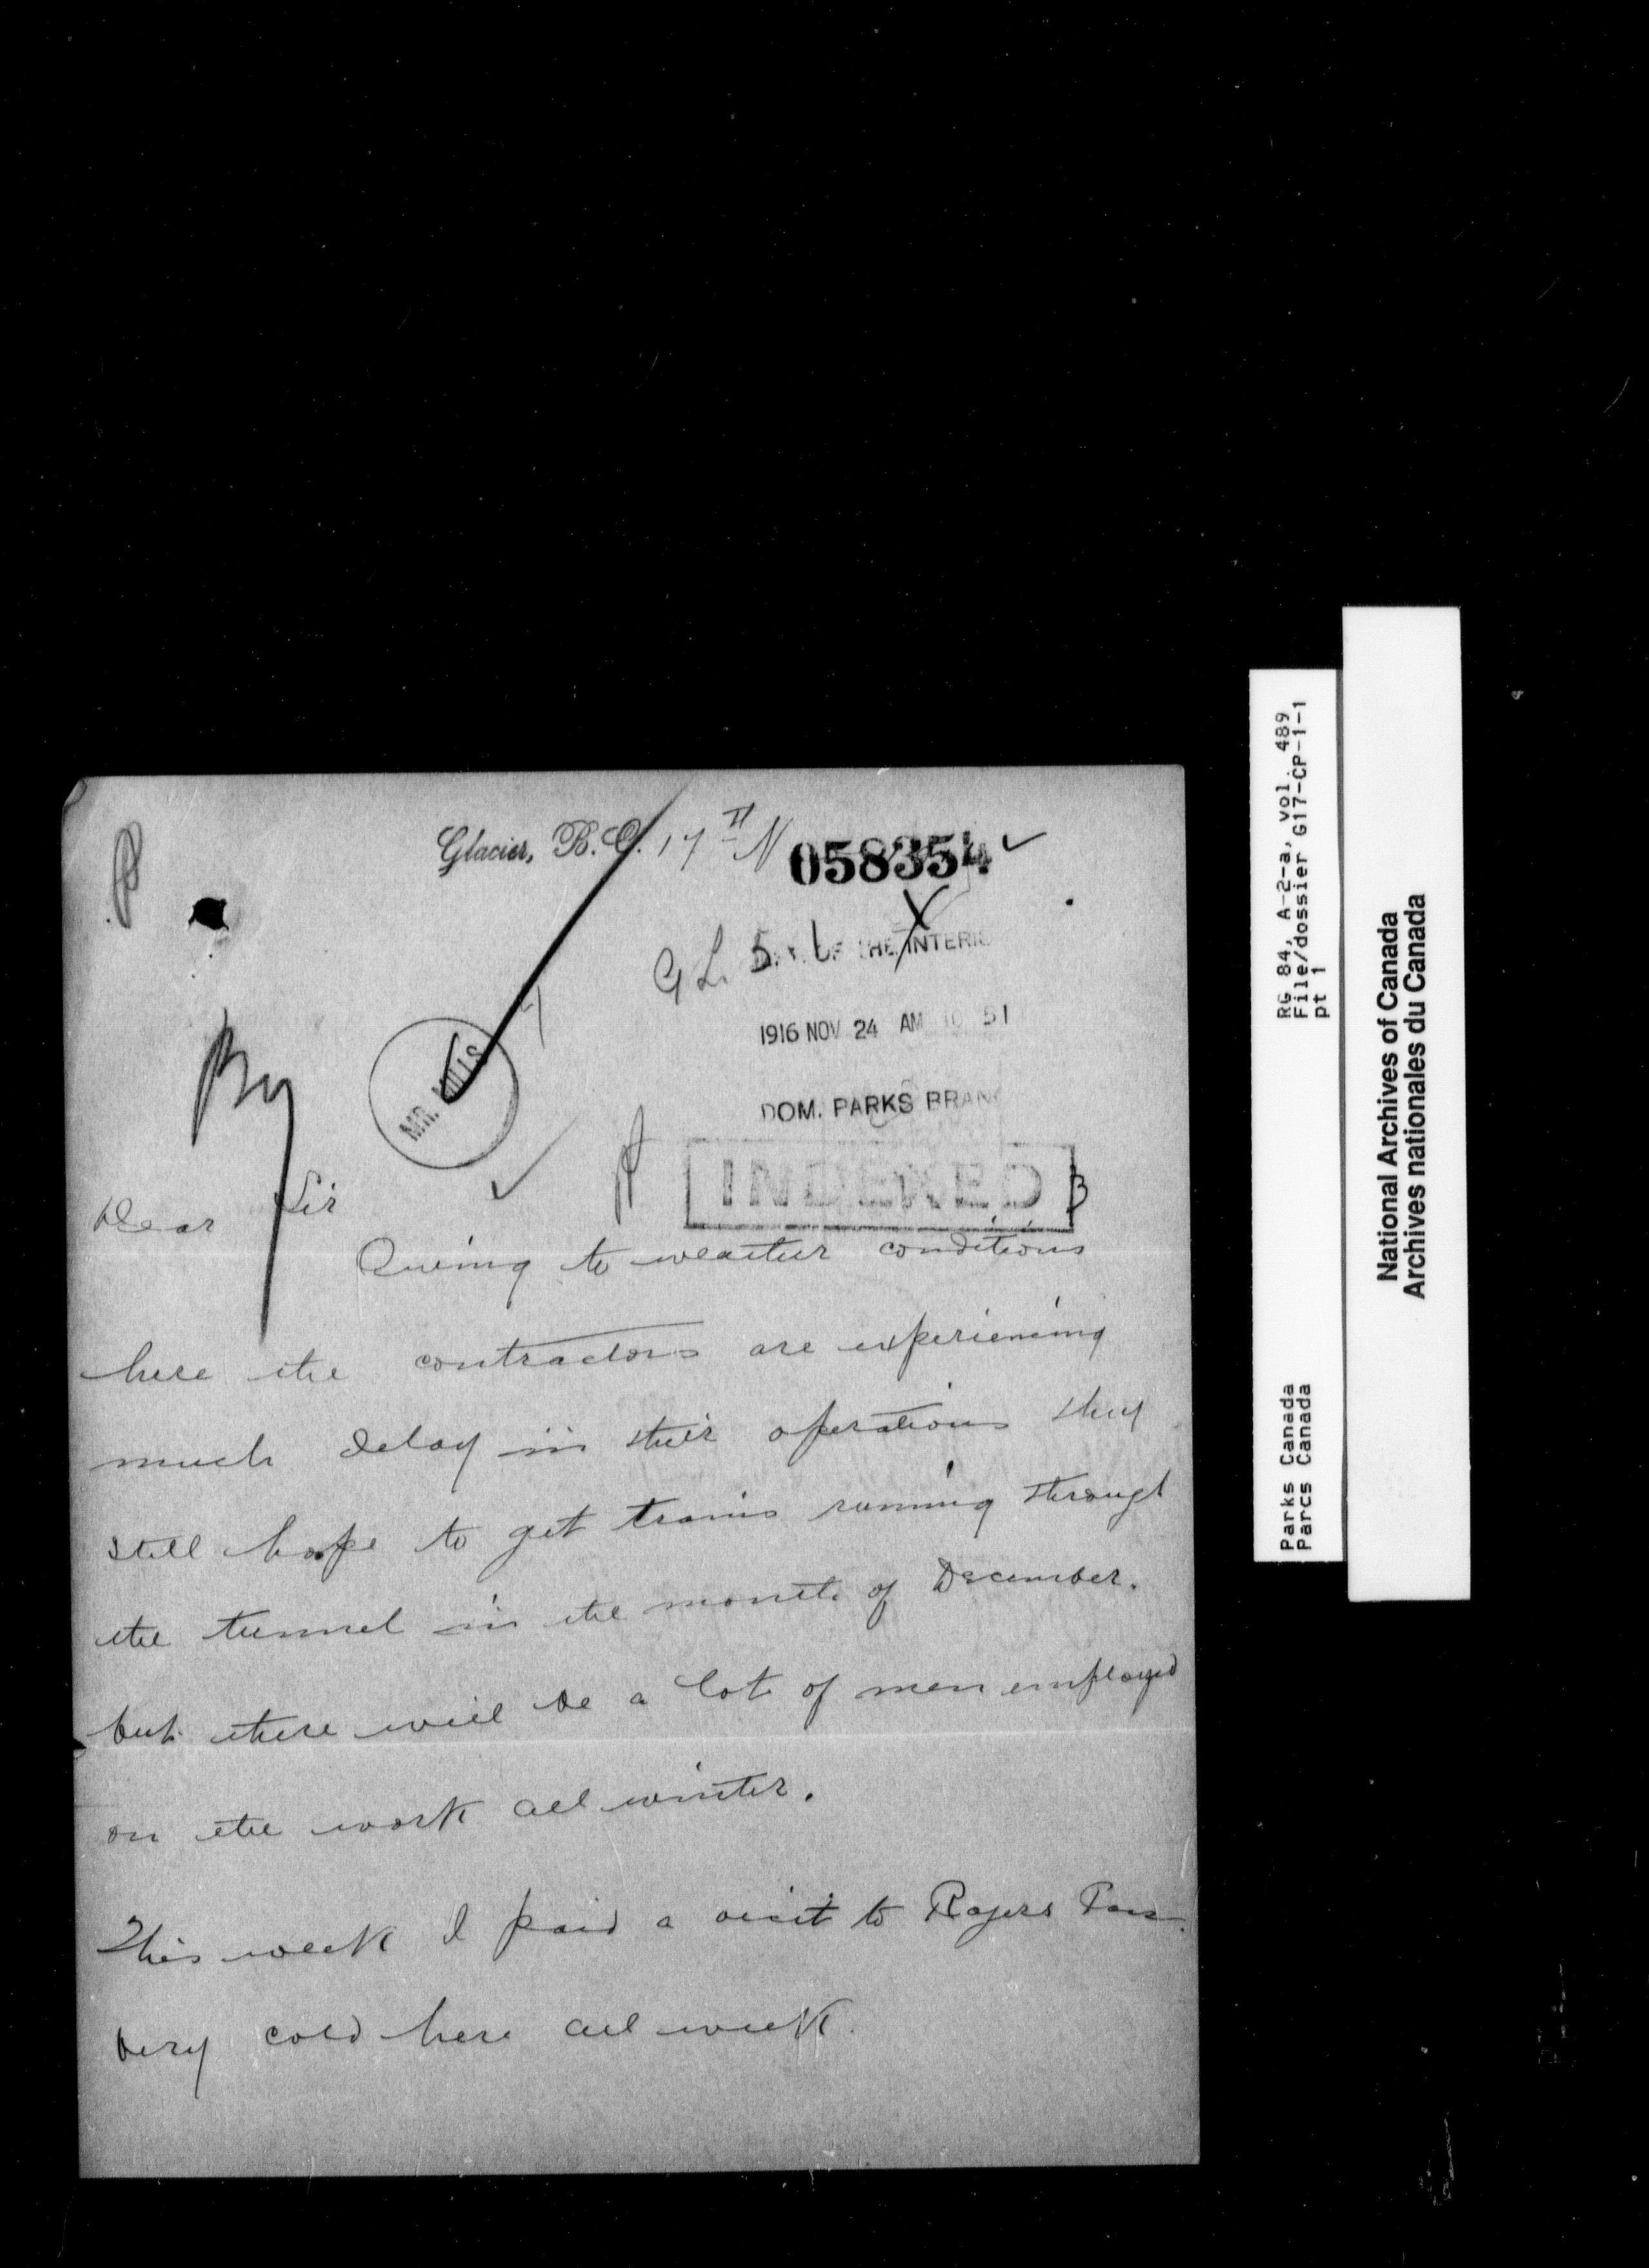 Glacier, B.C. 17th N
058354
G L 5. 1. X
DEPT. OF THE INTERIO
1916 NOV 24 AM 10 51
DOM. PARKS BRANC
MR. MILLS
INDEXED B
Dear Sir
Owing to weather conditions
here the contractors are experiencing
much delay in their operations they
still hope to get trains running through
the tunnel in the month of December.
but there will be a lot of men employed
on the work all winter.
This week I paid a visit to Rogers Pass.
very cold here all week.
RG 84, A-2-a, vol. 489
File/dossier G17-CP-1-1
pt 1
Parks Canada
Parcs Canada
National Archives of Canada
Archives nationales du Canada